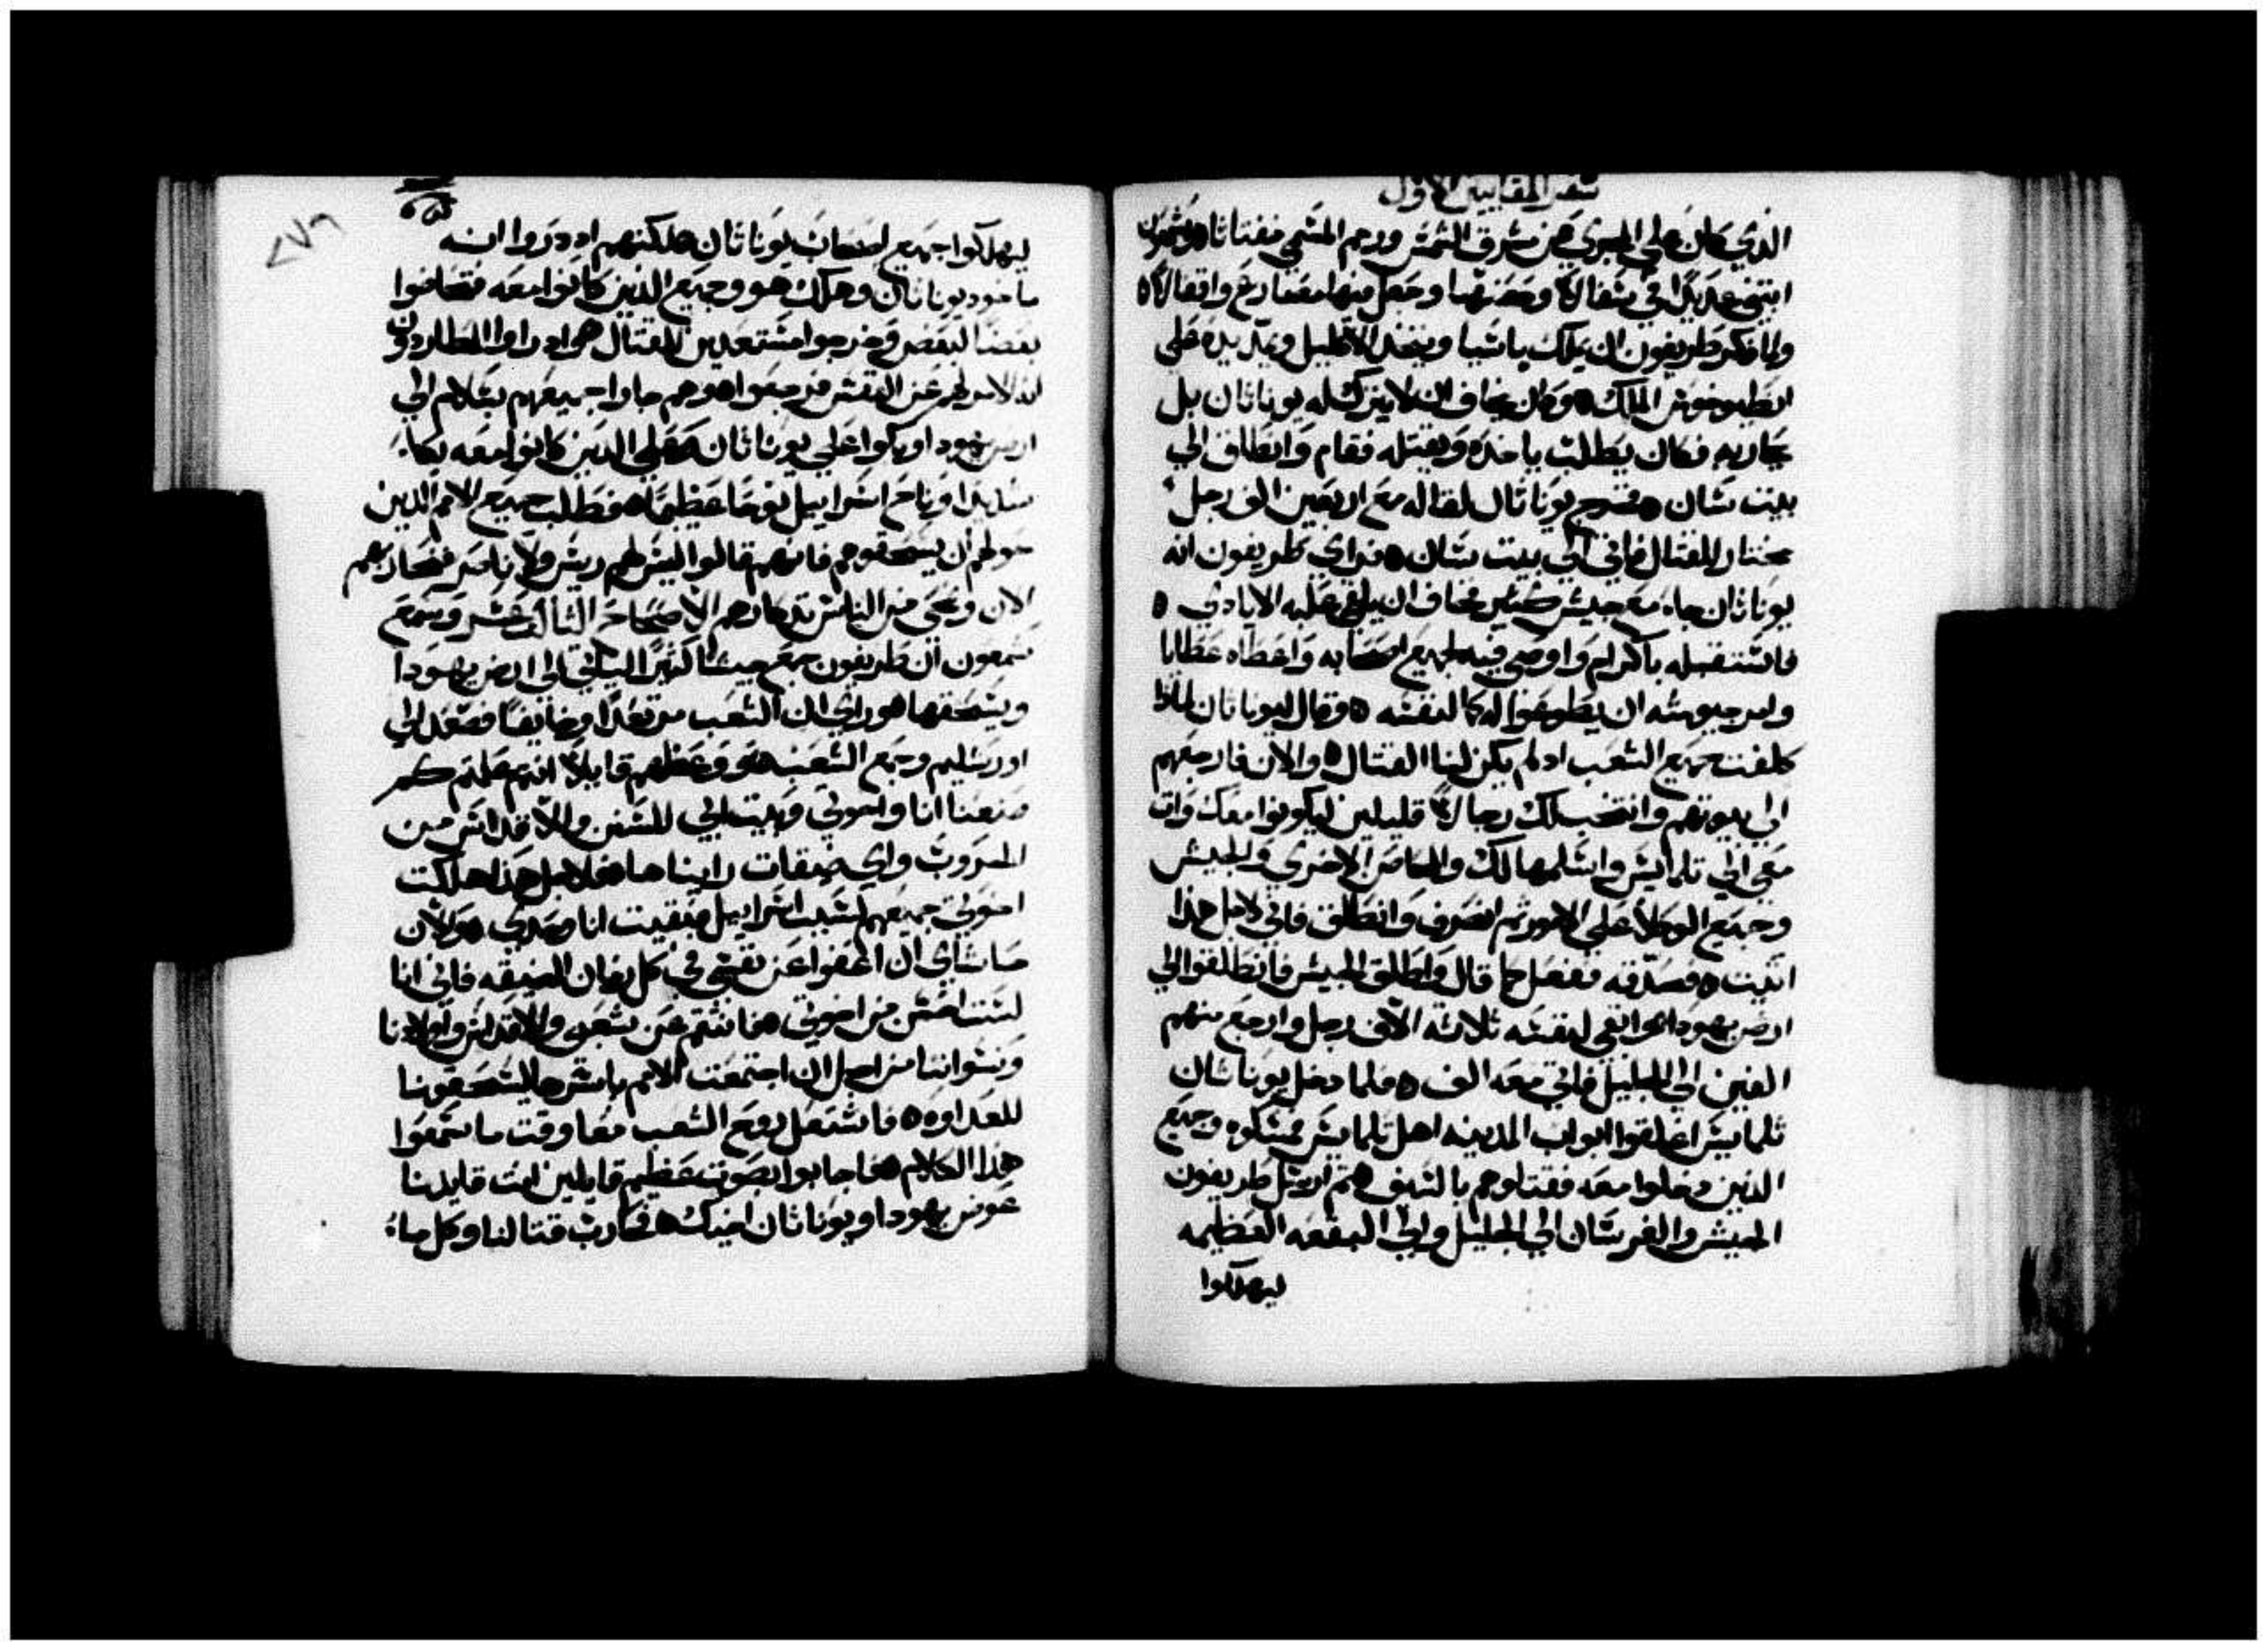 سفر المقابيين الاول
الذي كان علي المجري من مشرق الشمس ورمم المسمي مفتاثا ه وشمعون
ابتني عديدا في سفالا وحصنها وجعل فيها مصاريع واقفالا ه
ولما فكر طريفون ان يملك باسيا ويتخذ الاكليل ويمد يده علي
انطيوخوس الملك ه وكان يخاف ان لا يتركه يوناثان بل
يحاربه فكان يطلب ياخذه ويقتله فقام وانطلق الي
بيت سان ه فخرج يوناثان للقاله مع اربعين الف رجل
مختار للقتال فاتي الي بيت سان ه فراي طريفون انه
يوناثان جاء مع جيش كثير فخاف ان يلقي عليه الايادي ه
فاستقبله باكرام واوصي فيه لجميع اصحابه واعطاه عطايا
وامر جيوشه ان يطيعوا له كما لنفسه ه وقال ليوناثان لماذا
كلفت جميع الشعب اذ لم يكن لنا القتال ه والان فارجعهم
الي بيوتهم وانتخب لك رجالا قليلين ليكونوا معك وات
معي الي تلمايس واسلمها لك والمحاصن الاخري والجيش
وجميع الوكلا علي الامور ثم انصرف وانطلق فاني لاجل هذا
اتيت ه فصدقه ففعل كما قال واطلق الجيش فانطلقوا الي
ارض يهودا ه وابقي لنفسه ثلاثة الاف رجل وارجع منهم
الفين الي الجليل فاتي معه الف ه فلما دخل يوناثان
تلمايس اغلقوا ابواب المدينه اهل تلمايس مسكوه وجميع
الذين دخلوا معه فقتلوهم بالسيف ه ثم ارسل طريفون
الجيش والفرسان الي الجليل والي البقعه العظيمه
ليهلكوا
٢٧٦
ليهلكوا جميع اصحاب يوناثان ه لكنهم اذ دروا انه
ماخوذ يوناثان وهلك هو وجميع الذين كانوا معه فتحاضوا
بعضا لبعض وخرجوا مستعدين للقتال ه واذ راوا المطاردون
ان الامر لهم عن النفس فرجعوا ه وهم جاوا جميعهم بسلام الي
ارض يهودا وبكوا علي يوناثان وعلي الذين كانوا معه بكاء
شديدا وناح اسراييل نوحا عظيما ه فطلب جميع الامم الذين
حولهم ان يسحقوهم فانهم قالوا ليس لهم ريس ولا ناصر فنحاربهم
الان ونمحي من الناس تذكارهم الاصحاح الثالث عشر وسمع
سمعون ان طريفون جمع جيشا كثيرا لياتي الي ارض يهودا
ويسحقها ه وراي ان الشعب مرتعدا وخايفا فصعد الي
اورشليم وجمع الشعب ه ووعظهم قايلا انتم علمتم كم
صنعنا انا واخوتي وبيت ابي للسنن وللاقداس من
الحروب واي ضيقات راينا ها ه فلاجل هذا هلكت
اخوتي جميعهم لسبب اسراييل فبقيت انا وحدي ه والان
حاشاي ان اعفوا عن نفسي في كل زمان الضيقه فاني انا
لست احسن من اخوتي ه فانتقم عن شعبي والاقداس واولادنا
ونسواننا من اجل ان اجتمعت الامم باسرها ليسحقونا
للعداوه ه فاشتعل روح الشعب معا وقت ما سمعوا
هذا الكلام ه فاجابوا بصوت عظيم قايلين انت قايدنا
عوض يهودا ويوناثان اخيك ه فحارب قتالنا وكل ما